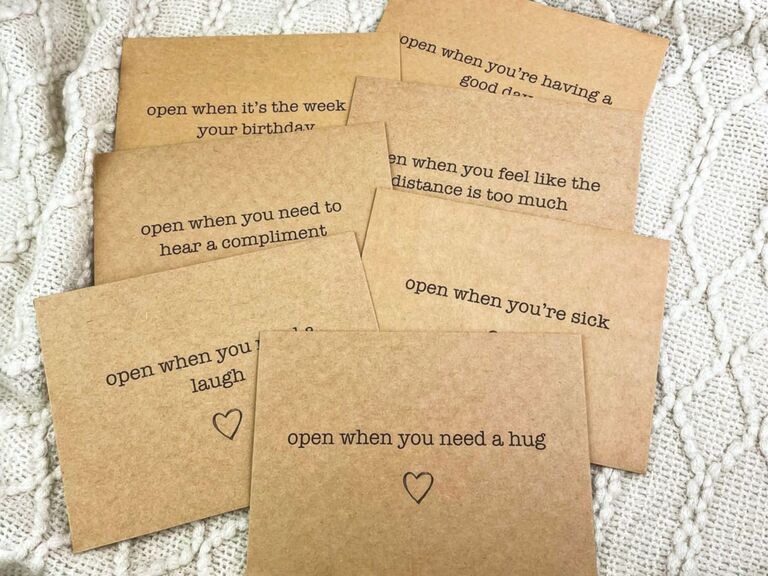 open when you're having a
good day
open when it's the week
your birthday
when you feel like the
distance is too much
open when you need to
hear a compliment
open when you're sick
open when you
laugh
open when you need a hug